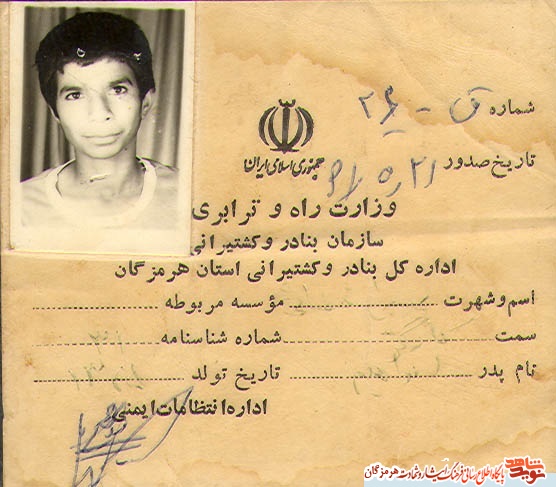 شماره ق - ۲۶
تاریخ صدور
جمهوری اسلامی ایران
وزارت راه و ترابری
سازمان بنادر و کشتیرانی
اداره کل بنادر و کشتیرانی استان هرمزگان
اسم و شهرت مؤسسه مربوطه
سمت شماره شناسنامه
نام پدر تاریخ تولد
اداره انتظامات ایمنی
نوید شاهد
پایگاه اطلاع رسانی فرهنگ ایثار و شهادت هرمزگان